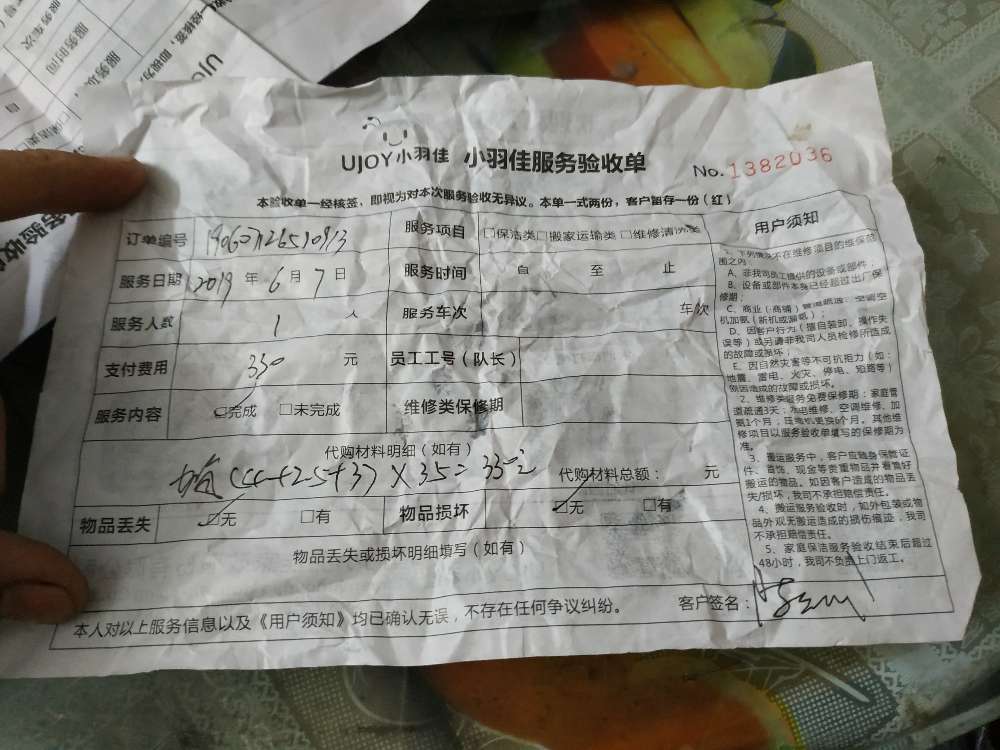 UJOY小羽佳 小羽佳服务验收单 No.1382036
本验收单一经核签，即视为对本次服务验收无异议。本单一式两份，客户留存一份（红）
订单编号 服务项目 □保洁类□搬家运输类□维修清洗类
服务日期 2019年6月7日 服务时间 自 至 止
服务人数 1 人 服务车次 车次
支付费用 330 元 员工工号（队长）
服务内容 ☑完成 □未完成 维修类保修期
代购材料明细（如有）
×35=330元 代购材料总额： 元
物品丢失 ☑无 □有 物品损坏 ☑无 □有
物品丢失或损坏明细填写（如有）
本人对以上服务信息以及《用户须知》均已确认无误，不存在任何争议纠纷。 客户签名：
用户须知
1、下列情况不在维修项目的维保范
围之内：
A、非我司员工提供的设备或部件；
B、设备或部件本身已经超过出厂保
修期；
C、商业（商铺）管道疏通、空调空
机加氨（新机或漏氨）；
D、因客户行为（擅自装卸、操作失
误等）或另请非我司人员检修所造成
的故障或损坏；
E、因自然灾害等不可抗拒力（如：
地震、雷电、火灾、停电、短路等）
原因造成的故障或损坏。
2、维修类服务免费保修期：家庭管
道疏通3天；水电维修、空调维修、加
氨1个月；压缩机更换6个月。其他维
修项目以服务验收单填写的保修期为
准。
3、搬运服务中，客户应随身保管证
件、首饰、现金等贵重物品并看管好
搬运的物品。如因客户造成的物品丢
失/损坏，我司不承担赔偿责任。
4、搬运服务验收时，如外包装或物
品外观无搬运造成的损伤痕迹，我司
不承担赔偿责任。
5、家庭保洁服务验收结束后超过
48小时，我司不负责上门返工。